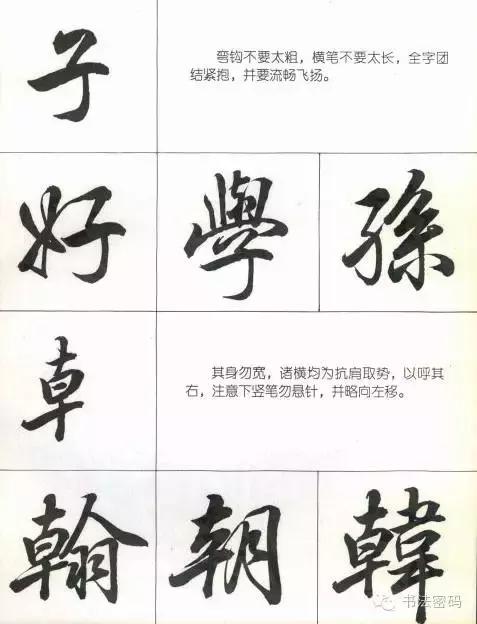 子
弯钩不要太粗，横笔不要太长，全字团
结紧抱，并要流畅飞扬。
好 學 孫
卓
其身勿宽，诸横均为抗肩取势，以呼其
右，注意下竖笔勿悬针，并略向左移。
翰 朝 韓
书法密码